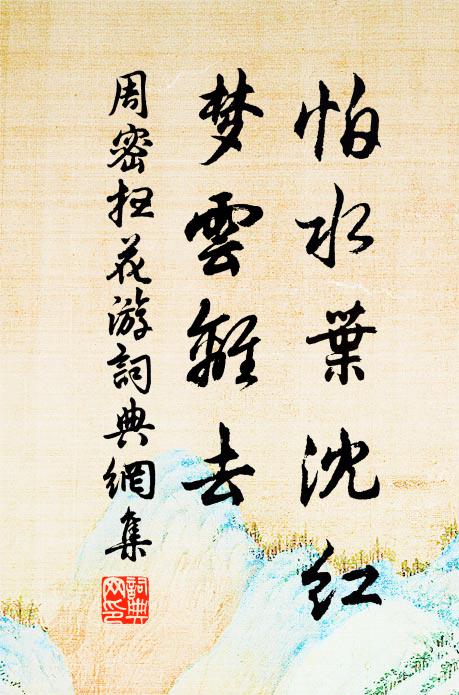 怕水葉沈红
梦雲離去
周密扫花游詞典網集
詞典
网印